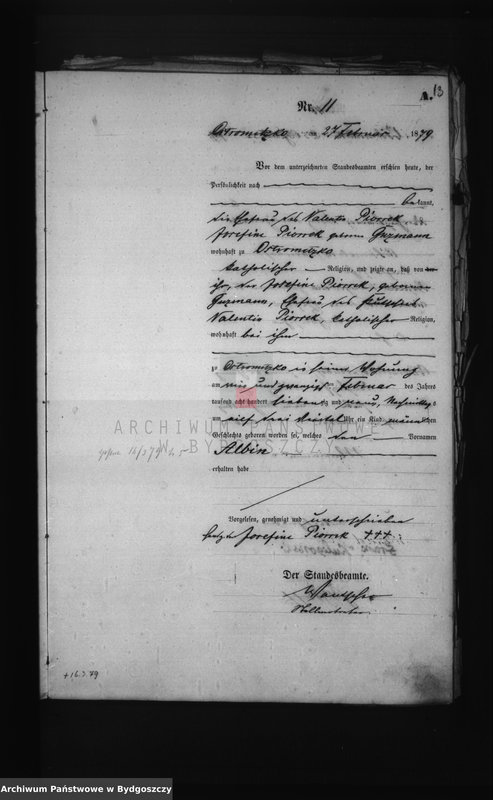 A. 13
Nr. 11
Ostrometzko am 27 Februar 1879
Vor dem unterzeichneten Standesbeamten erschien heute, der
Persönlichkeit nach
bekannt,
die Ehefrau des Valentin Piorrek
Josefine Piorrek geborene Guzmann
wohnhaft zu Ostrometzko
katholischer Religion, und zeigte an, daß von
ihr, der Josefine Piorrek, geborene
Guzmann, Ehefrau des
Valentin Piorrek, katholischer Religion,
wohnhaft bei ihm
zu Ostrometzko in seiner Wohnung
am ein und zwanzigsten Februar des Jahres
tausend acht hundert siebenzig und neun, Nachmittags
um drei Viertel Uhr ein Kind männlichen
Geschlechts geboren worden sei, welches den Vornamen
Albin
erhalten habe
Vorgelesen, genehmigt und unterschrieben
Josefine Piorrek +++
Der Standesbeamte.
+ 16.3.79
ARCHIWUM PAŃSTWOWE
W BYDGOSZCZY
Archiwum Państwowe w Bydgoszczy